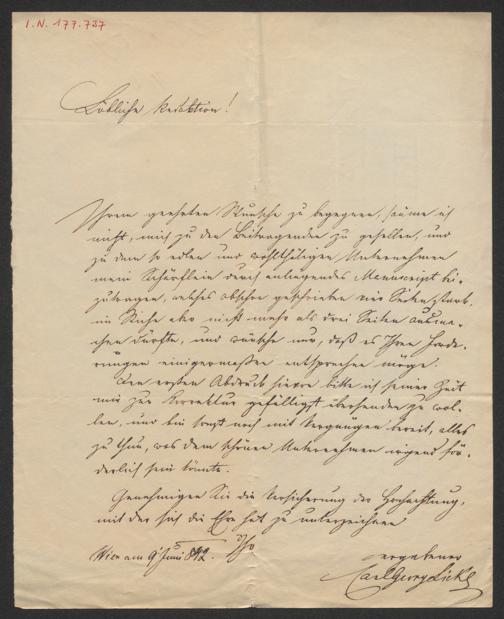 I. N. 177.727
Löbliche Redaktion!
Ihrem geehrten Wunsche zu begegnen, säume ich
nicht, mich zu den Beitragenden zu gesellen, und
zu dem so edlen und wohlthätigen Unternehmen
mein Schärflein durch anliegendes Manuscript bei-
zutragen, welches obschon geschrieben vier Seiten stark,
im Stiche aber nicht mehr als drei Seiten ausma-
chen dürfte, und wünsche nur, daß es Ihren Forde-
rungen einigermassen entsprechen möge.
Den ersten Abdruck hievon bitte ich seiner Zeit
mir zur Korrektur gefälligst übersenden zu wol-
len, und bin sonst noch mit Vergnügen bereit, alles
zu thun, was dem schönen Unternehmen irgend för-
derlich sein könnte.
Genehmigen Sie die Versicherung der Hochachtung,
mit der sich die Ehre hat zu unterzeichnen
Wien am 9 Juni 842. Ihr
ergebener
Carl Georg Lickl